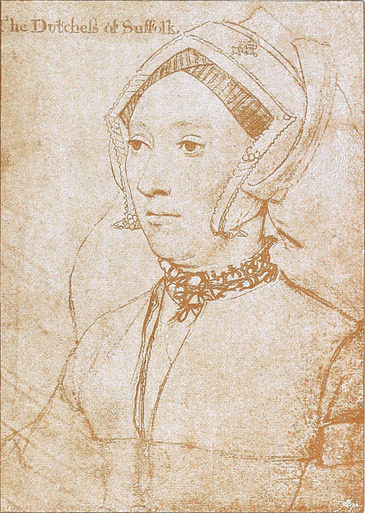 The Dutchess of Suffolk.